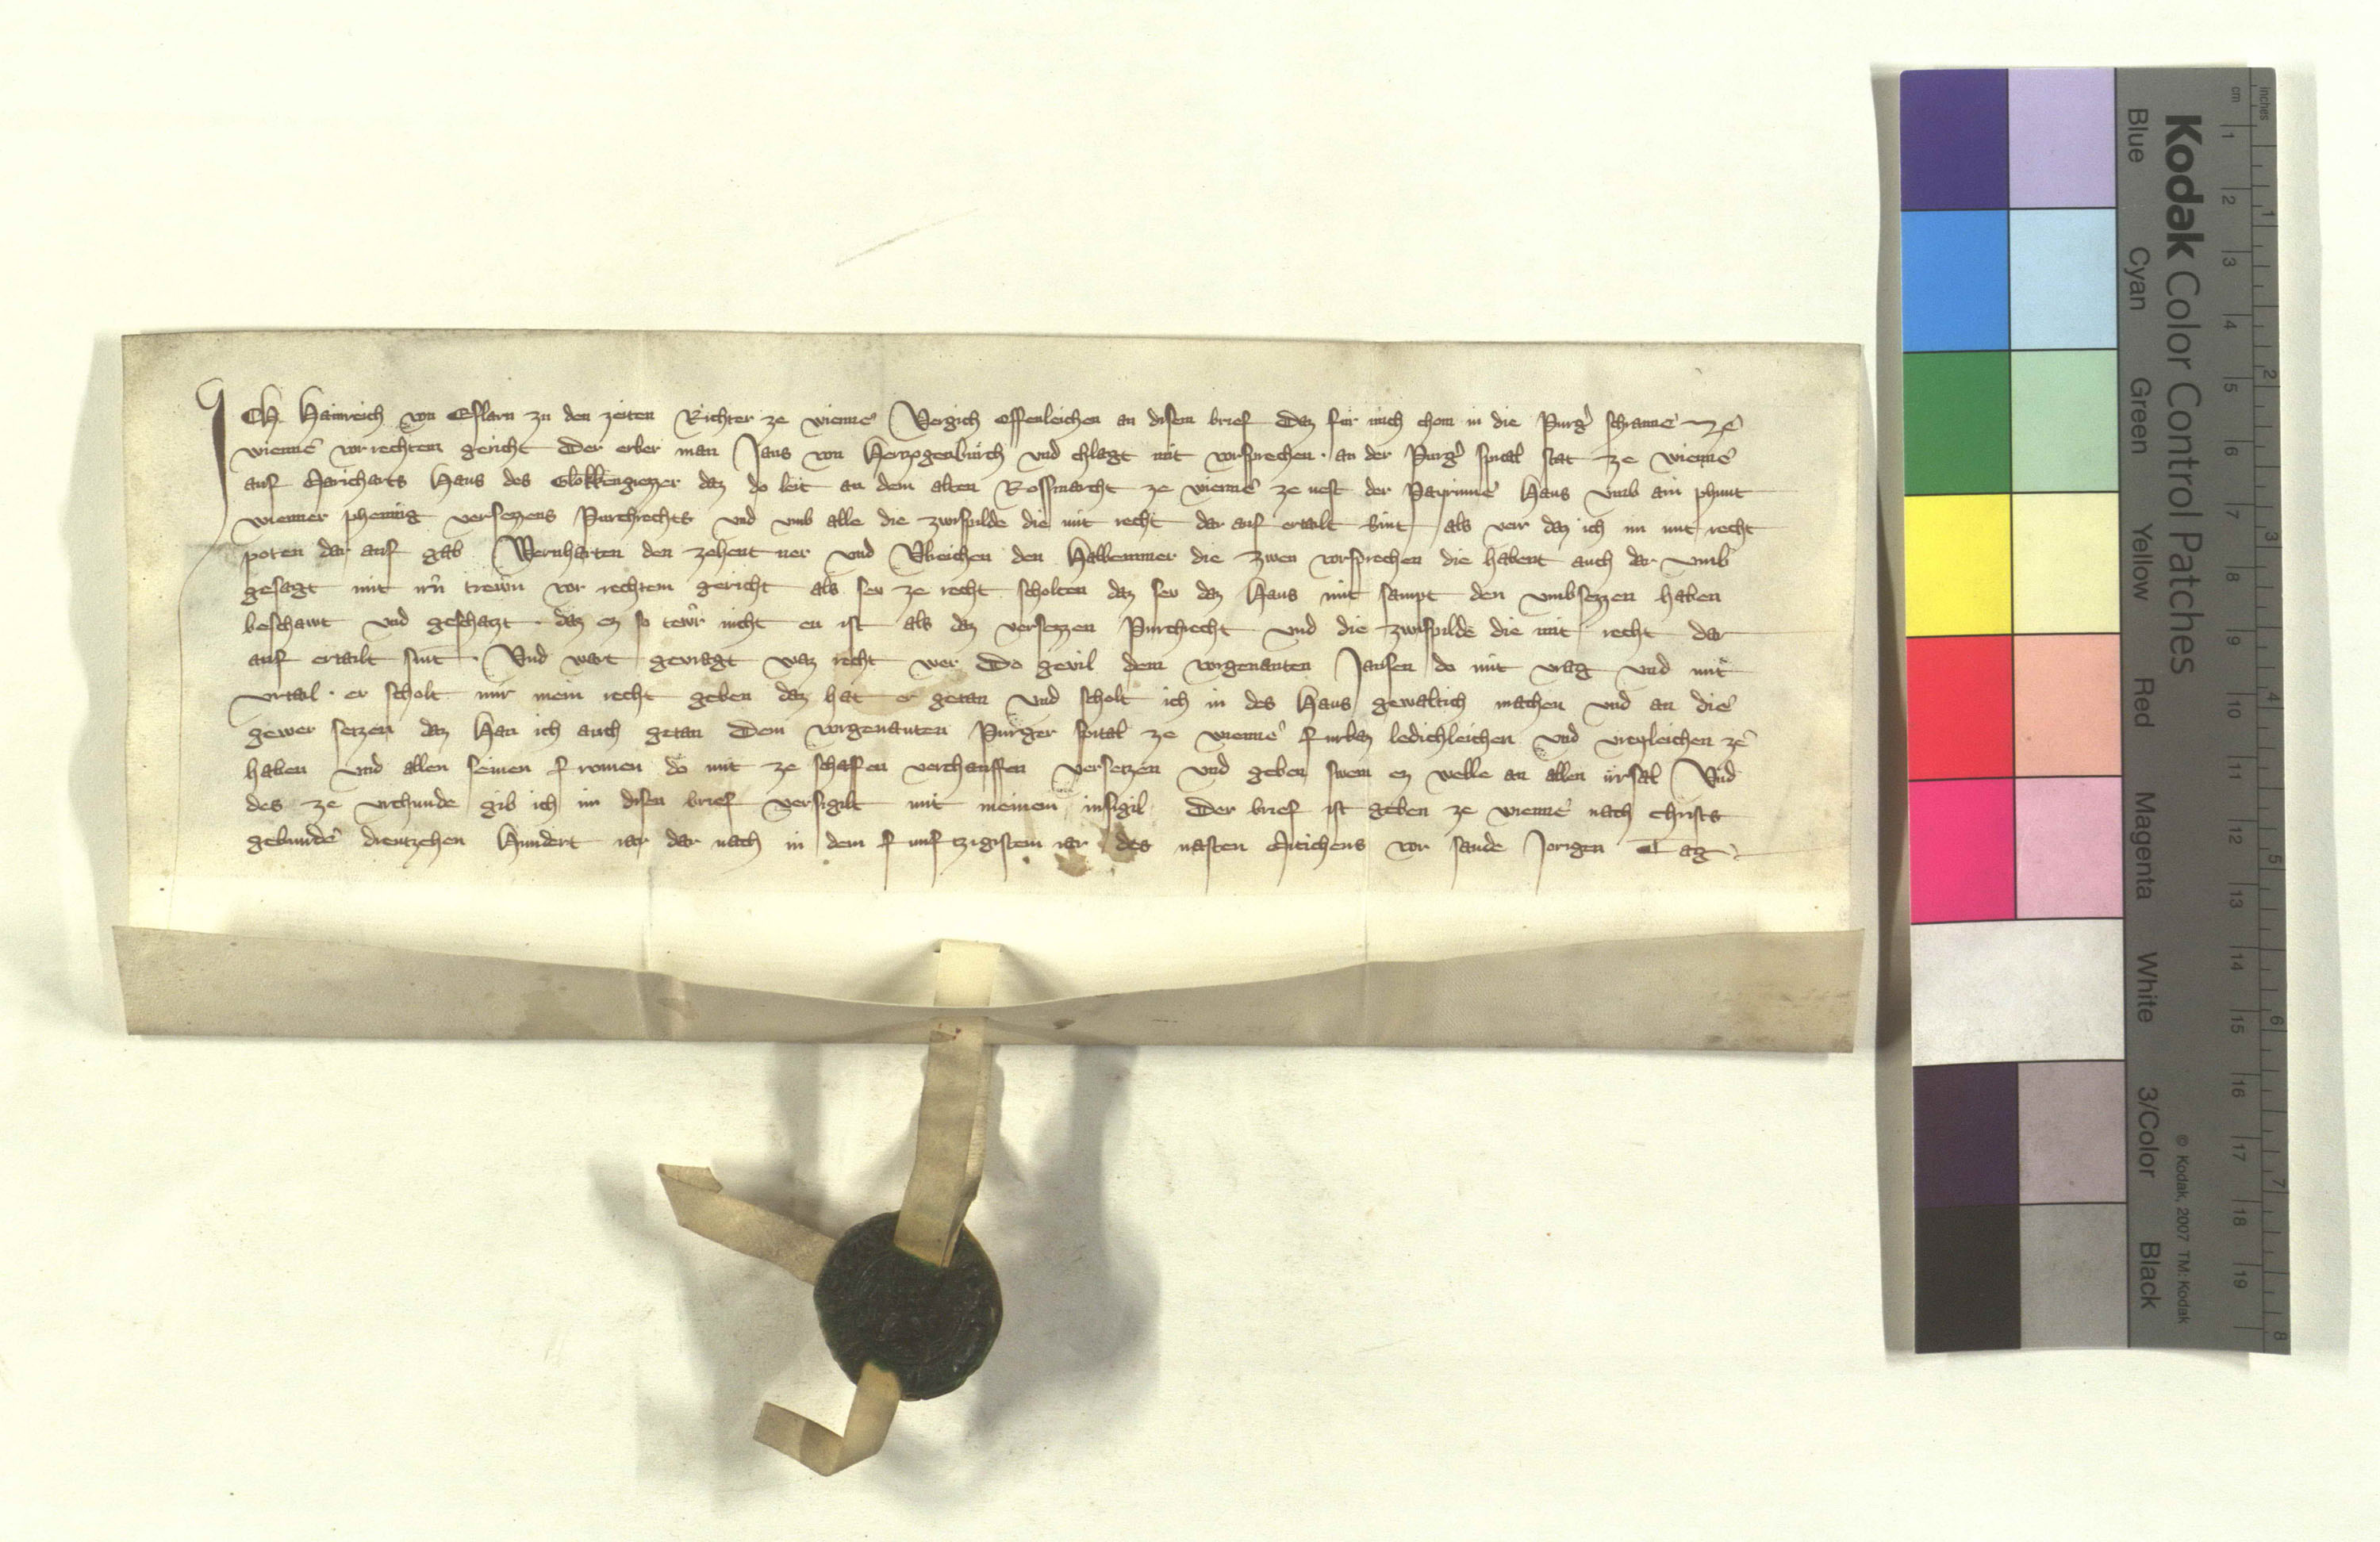 ICH Hainreich von Eslarn zu den zeiten Richter ze wienne Vergich offenleichen an disem brief Daz für mich chom in die Purg schranne ze
wienne vor rechtem gericht Der erber man Jans von Herzogenburch und chlagt mit vorsprechen an der Purg spital stat ze wienne
auf Maricharts Haus des Glokkengiezzer daz do leit an dem alten Rossmarcht ze wienne ze nest der Payrinne Haus umb ain phunt
wienner phennig versezzens Purchrechts und umb alle die zwispilde die mit recht dar auf ertailt sint als verr daz ich im mit recht
poten dar auf gab Wernharten den zehentner und Ulreichen den die zwen vorsprechen die habent auch dar umb
gesagt mit irn trewn vor rechtem gericht als sew ze recht scholten daz sew daz Haus mit sampt den umbsezzen haben
beschawt und geschatzt daz ez so tewr nicht en ist als daz versezzen Purchrecht und die zwispilde die mit recht dar
auf ertailt sint Und wart gevragt waz recht wer Do gevil dem vorgenanten Jansen do mit vrag und mit
urtail er scholt mir mein recht geben daz hat er getan und scholt ich in des Haus gewaltich machen und an die
gewer setzen daz Han ich auch getan Dem vorgenanten Purger spital ze wienne furbaz ledichleichen und vreyleichen ze
haben und allen seinen fromen do mit ze schaffen verchauffen versetzen und geben swem ez welle an allen irrsal Und
des ze urchunde gib ich im disen brief versigilt mit meinem insigil Der brief ist geben ze wienne nach Christs
geburde dreutzehen Hundert iar dar nach in dem funftzigistem iar des nasten Mitichens vor sande Jorigen Tag
Kodak Color Control Patches
Blue Cyan Green Yellow Red Magenta White 3/Color Black
© Kodak, 2007 TM: Kodak
cm 1 2 3 4 5 6 7 8 9 10 11 12 13 14 15 16 17 18 19
inches 1 2 3 4 5 6 7 8